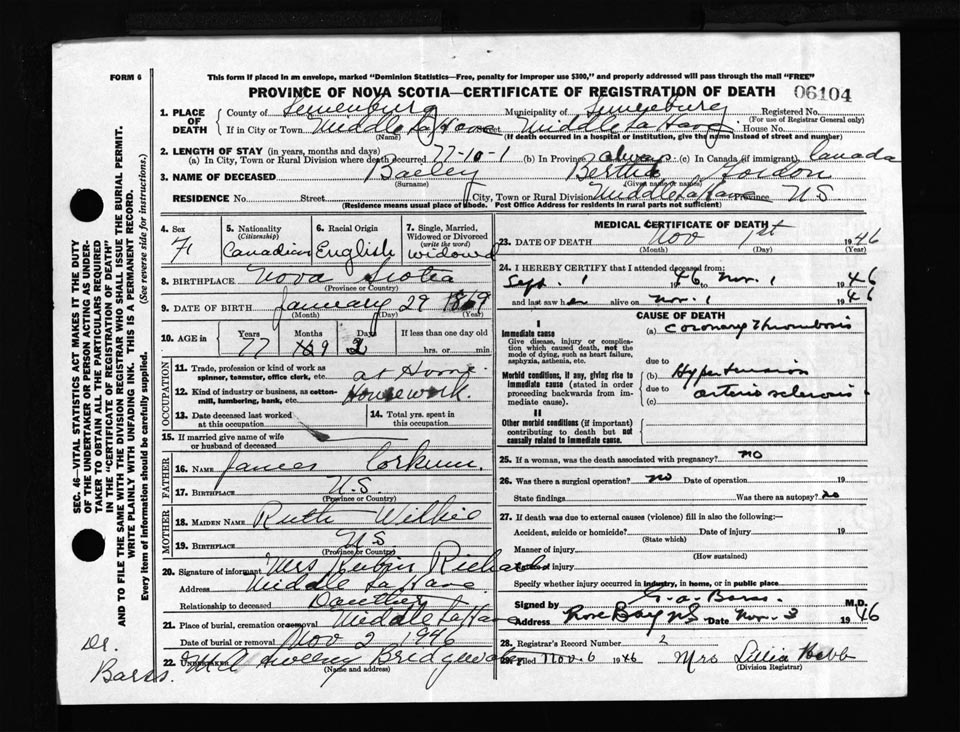 FORM 6
This form if placed in an envelope, marked "Dominion Statistics—Free, penalty for improper use $300," and properly addressed will pass through the mail "FREE"
PROVINCE OF NOVA SCOTIA—CERTIFICATE OF REGISTRATION OF DEATH 06104
1. PLACE OF DEATH
County of Lunenburg Municipality of Lunenburg Registered No.
(For use of Registrar General only)
If in City or Town Middle LaHave Street Middle LaHave House No.
(Name) (If death occurred in a hospital or institution, give the name instead of street and number)
2. LENGTH OF STAY (in years, months and days)
(a) In City, Town or Rural Division where death occurred 77-10-1 (b) In Province always (c) In Canada (if immigrant) Canada
3. NAME OF DECEASED Bailey Bertha Gordon
(Surname) (Given name or names)
RESIDENCE No. Street City, Town or Rural Division Middle LaHave Province NS
(Residence means usual place of abode. Post Office Address for residents in rural parts not sufficient)
4. Sex 5. Nationality (Citizenship) 6. Racial Origin 7. Single, Married, Widowed or Divorced (write the word)
F Canadian English Widowed
8. BIRTHPLACE Nova Scotia
(Province or Country)
9. DATE OF BIRTH January 29 1869
(Month) (Day) (Year)
10. AGE in Years Months Days If less than one day old
77 9 2 hrs. or min.
OCCUPATION
11. Trade, profession or kind of work as spinner, teamster, office clerk, etc. at Home
12. Kind of industry or business, as cotton-mill, lumbering, bank, etc. Housework.
13. Date deceased last worked at this occupation
14. Total yrs. spent in this occupation
15. If married give name of wife or husband of deceased
FATHER
16. NAME James Corkum.
17. BIRTHPLACE N.S
(Province or Country)
MOTHER
18. MAIDEN NAME Ruth Wilkie
19. BIRTHPLACE NS
(Province or Country)
20. Signature of informant Mrs Rubin Richards
Address Middle LaHave
Relationship to deceased Daughter
21. Place of burial, cremation or removal Middle LaHave
Date of burial or removal Nov 2 1946
22. UNDERTAKER Sweeny Bridgewater
(Name and address)
MEDICAL CERTIFICATE OF DEATH
23. DATE OF DEATH Nov 1st 1946
(Month) (Day) (Year)
24. I HEREBY CERTIFY that I attended deceased from:
Sept. 1 1946 to Nov. 1 1946
and last saw her alive on Nov. 1 1946
CAUSE OF DEATH
I
Immediate cause
Give disease, injury or complication which caused death, not the mode of dying, such as heart failure, asphyxia, asthenia, etc.
(a) Coronary Thrombosis
due to
Morbid conditions, if any, giving rise to immediate cause (stated in order proceeding backwards from immediate cause).
(b) Hypertension
due to
(c) arterio sclerosis
II
Other morbid conditions (if important) contributing to death but not causally related to immediate cause.
25. If a woman, was the death associated with pregnancy? no
26. Was there a surgical operation? no Date of operation 19
State findings Was there an autopsy? no
27. If death was due to external causes (violence) fill in also the following:—
Accident, suicide or homicide? Date of injury 19
(State which)
Manner of injury
(How sustained)
of injury
Specify whether injury occurred in industry, in home, or in public place
Signed by Barss. M.D.
Rose Bay NS Date Nov. 3 1946
28. Registrar's Record Number 2
29. Filed Nov. 6 1946 Mrs Lillia
(Division Registrar)
Dr.
Barss.
SEC. 46—VITAL STATISTICS ACT MAKES IT THE DUTY
OF THE UNDERTAKER OR PERSON ACTING AS UNDERTAKER TO OBTAIN ALL THE PARTICULARS REQUIRED
IN THE "CERTIFICATE OF REGISTRATION OF DEATH"
AND TO FILE THE SAME WITH THE DIVISION REGISTRAR WHO SHALL ISSUE THE BURIAL PERMIT.
WRITE PLAINLY WITH UNFADING INK. THIS IS A PERMANENT RECORD.
Every item of information should be carefully supplied. (See reverse side for instructions.)